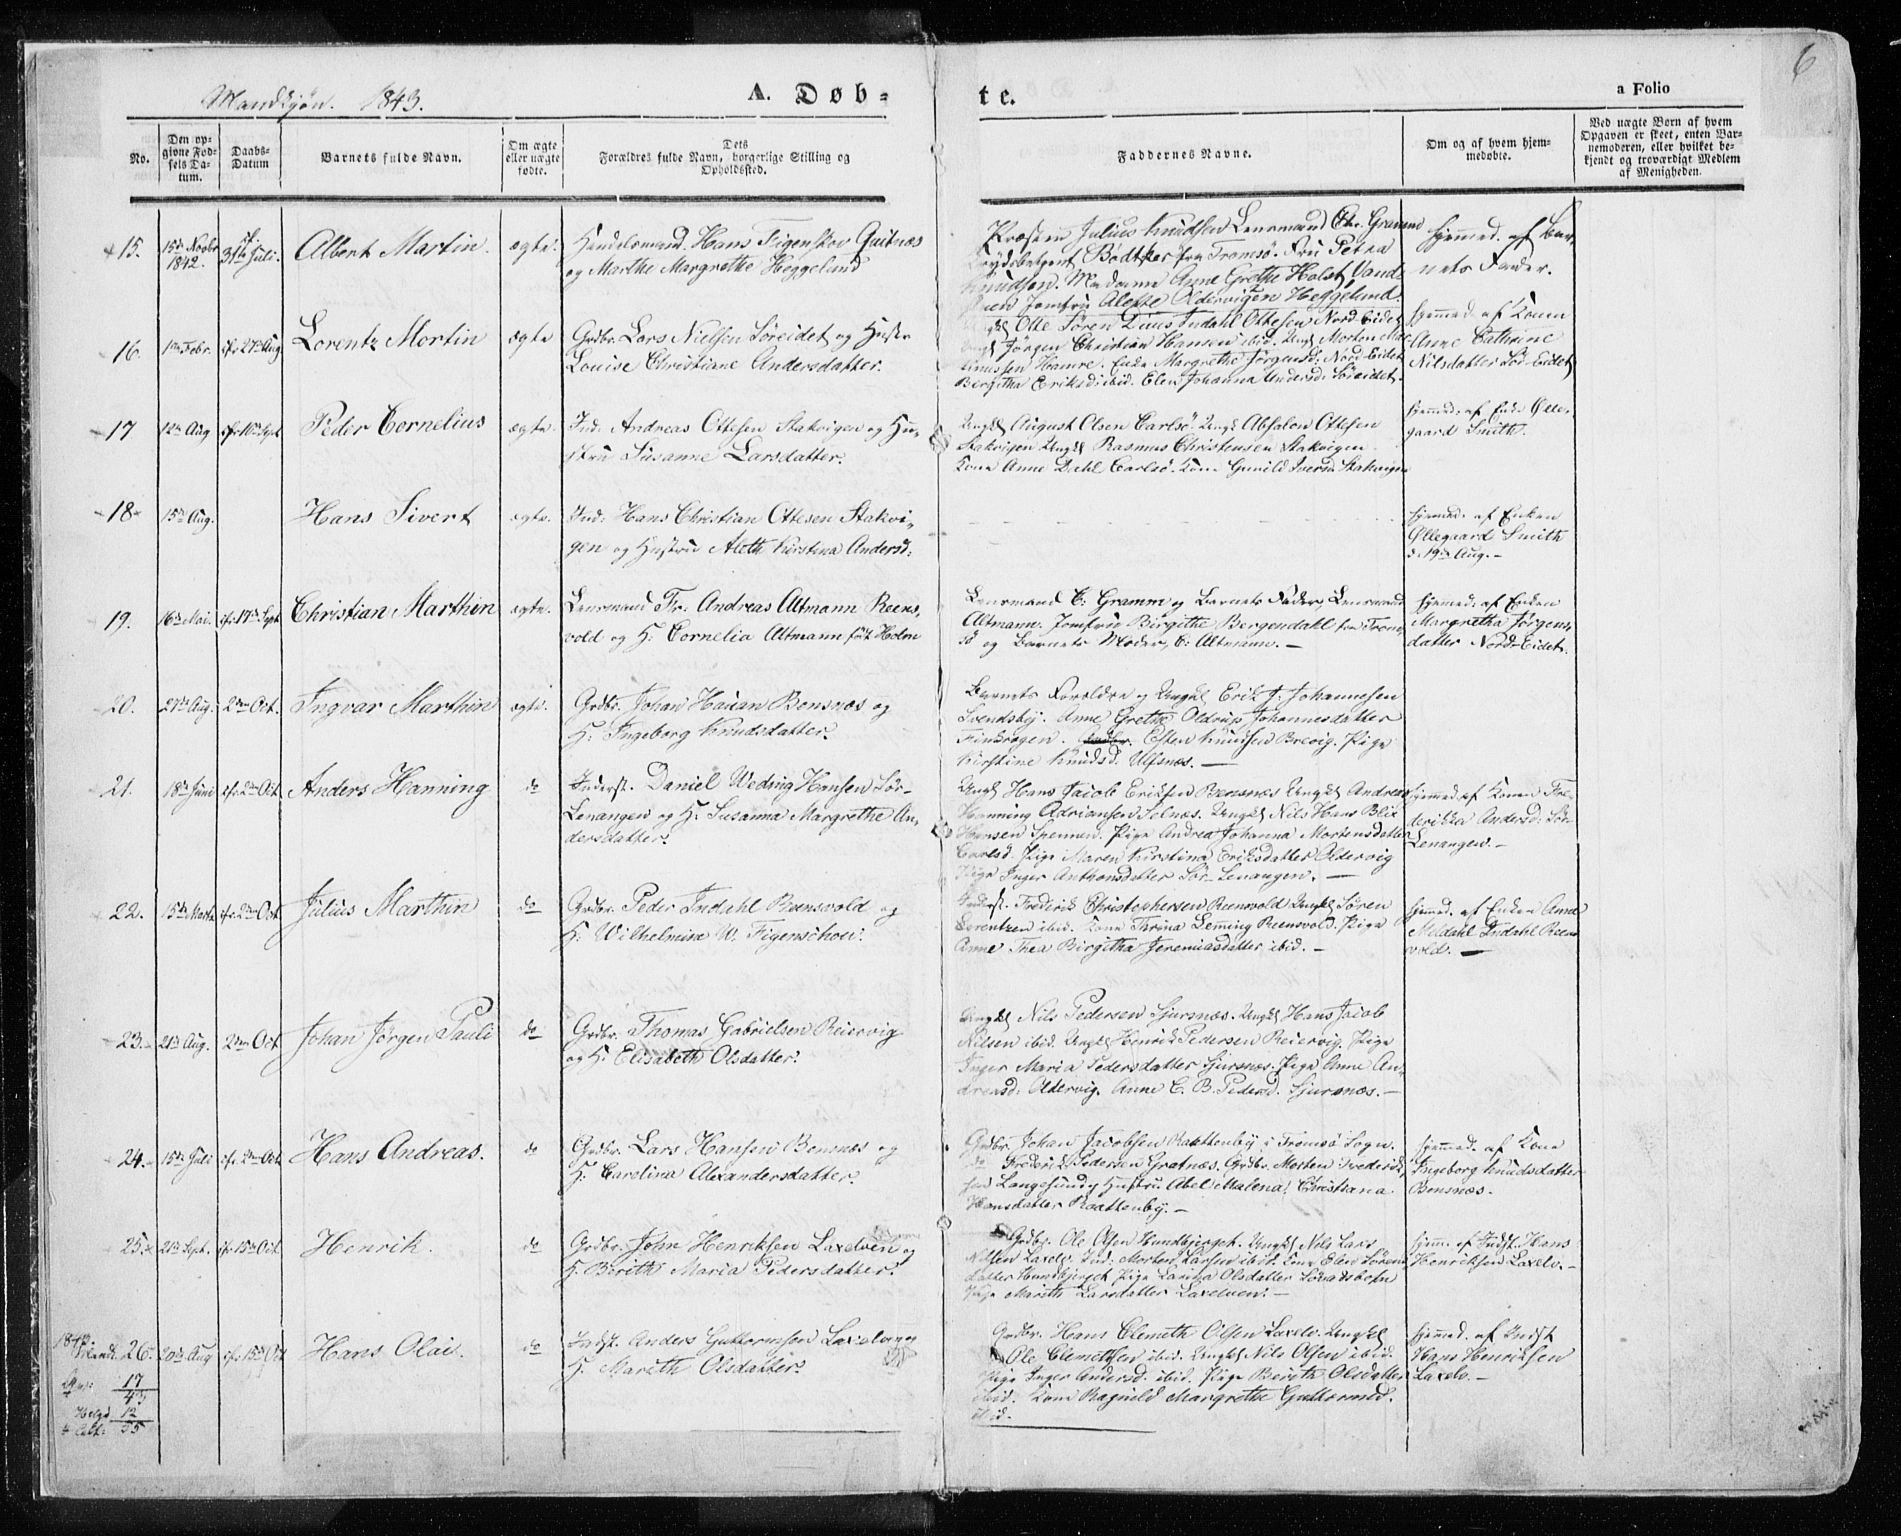 6
Mandkjøn. 1843.
A. Døb-
te.
a Folio
No.
Den op-
givne Fød-
sels Da-
tum.
Daabs-
Datum
Barnets fulde Navn.
Om ægte
eller uægte
fødte.
Dets
Forældres fulde Navn, borgerlige Stilling og
Opholdssted.
Faddernes Navne.
Om og af hvem hjem-
medøbte.
Ved uægte Børn af hvem
Opgaven er skeet, enten Bar-
nemoderen, eller hvilket be-
kjendt og troværdigt Medlem
af Menigheden.
15.
15de Novbr
1842.
31te Juli.
Albert Martin.
ægte.
Handelsmand Hans Figenskov Quitnæs
og Marthe Margrethe Heggelund
Præsten Julius Knudsen Lensmand Chr. Gramm
Bødtker fra Tromsø. Fru Petra
Knudsen. Madame Anne Grethe Holst Vand-
Jomfru Alette Oldervigen Heggelund.
hjemmed. af Bar-
nets Fader.
16.
1ste Febr.
cfr 27de Aug.
Lorentz Mortin
ægte
Grdbr. Lars Nielsen Søreidet og Hustru
Louise Christiane Andersdatter.
Otte Søren Dius Indahl Ottesen Nord Eidet
Ungk Jørgen Christian Hansen ibid. Ungk Morten
Knudsen Hamre. Enke Margrethe Jørgensd: Nord-Eidet
Birgitha Eriksd: ibid. Elen Johanna Andersd: Søreidet.
hjemmed. af Konen
Anne Cathrine
Nilsdatter Sør-Eidet
17
12te Aug
cfr 10de Sept
Peder Cornelius
ægte.
Ind. Andreas Ottesen Stakvigen og Hu-
stru Susanne Larsdatter.
Ungk August Olsen Carlsö. Ungk Absalon Ottesen
Stakvigen Ungk Rasmus Christensen Stakvigen.
Kone Anne Dahl Carlsö. Kone Gunild Iversd Stakvigen
hjemmed. af Enke Ølle-
gaard Smith.
18
15de Aug.
Hans Sivert
ægte.
Ind: Hans Christian Ottesen Stakvi-
gen og Hustrue Aleth Kirstina Andersd:
hjemmed. af Enken
Øllegaard Smith
d. 19de Aug. -
19.
16de Mai.
cfr 17de Sept
Christian Marthin
ægte.
Lensmand Fr. Andreas Altmann Reens-
vold og H. Cornelia Altmann født Holm
Lensmand C: Gramm og Barnets Fader, Lensmand
Altmann. Jomfrue Birgithe Bergendahl fra Trom-
sö og Barnets Moder, C: Altmann. -
hjemmed: af Enken
Margretha Jørgens-
datter Nord-Eidet.
20.
27de Aug.
2den Oct.
Ingvar Marthin
ægte.
Grdbr. Johan Hauan Bensnæs og
H. Ingeborg Knudsdatter.
Barnets Forældre og Ungk Erik J. Johannesen
Svendsby. Anne Grethe Oldrup Johannesdatter
Finkrogen. Esten Knudsen Brevig. Pige
Kirstine Knudsd. Ulfsnæs. -
21.
18de Juni
cfr 2den Oct.
Anders Hanning
do
Inderst. Daniel Weding Hansen Sør-
Lenangen og H. Susanna Margrethe An-
dersdatter.
Ungk Hans Jacob Eriksen Bensnæs Ungk Andreas
Hanning Adriansen Selnæs. Ungk Nils Hans Blix
Hansen Spennen. Pige Andrea Johanna Mortensdatter
Carlsö. Pige Maren Kirstina Eriksdatter Oldervig
Pige Inger Anthonsdatter Sør-Lenangen. -
hjemmed af Konen Fre-
derikka Andersd: Sør-
Lenangen. -
22.
15de Marts
cfr 2den Oct.
Julius Marthin
do
Grdbr. Peder Indahl Reensvold og
H. Wilhelmina W. Figenschou.
Inderst. Frederik Christophersen Reensvold Ungk Søren
Lorentzen ibid. Kone Thrina Leming Reensvold. Pige
Anne Thea Birgitha Jeremiasdatter ibid. -
hjemmed. af Enken Anne
Meldahl Indahl Reens-
vold. -
23.
21de Aug.
2den Oct.
Johan Jørgen Pauli
do
Grdbr. Thomas Gabrielsen Reiervig
og H. Elisabeth Olsdatter.
Ungk Nils Pedersen Sjursnæs. Ungk Hans Jacob
Nilsen ibid. Ungk Henrik Pedersen Reiervig. Pige
Inger Maria Pedersdatter Sjursnæs. Pige Anne An-
dreasd: Oldervig. Anne C. B. Pedersd. Sjursnæs. -
24.
15de Juli
cfr 2den Oct.
Hans Andreas.
do
Grdbr. Lars Hansen Bensnæs og
H. Carolina Alexandersdatter.
Grdbr. Johan Jacobsen Raattenby i Tromsö Sogn.
do Frederik Pedersen Gratnæs. Grdbr. Morten Frederik-
sen Langesund og Hustru Abel Malena. Christiana
Hansdatter Raattenby. -
hjemmed. af Kone
Ingeborg Knudsdatter
Bensnæs.
25.
21de Sept.
cfr 15de Oct.
Henrik.
do
Grdbr. John Henriksen Laxelven og
H. Berith Maria Pedersdatter.
Grdbr. Ole Olsen Hundbjerget. Ungk Nils Lars
Nilsen Laxelv. Ind: Morten Larsen ibid. Kone Elen Sørens-
datter Hundbjerget Pige Karina Olsdatter
Pige Marith Larsdatter Laxelven. -
hjemm. af Indst. Hans
Henriksen Laxelv. -
1843.
Mandk.
26.
20de Aug
cfr 15de Oct
Hans Olai.
do
Indst. Anders Guttormsen Laxelven og
H. Marith Olsdatter.
Grdbr. Hans Clemeth Olsen Laxelv. Ungk
Ole Clemetsen ibid. Ungk Nils Olsen ibid.
Pige Inger Andersd. ibid. Pige Berith Olsdatter
ibid. Kone Ragnild Margrethe Guttormsd.
ibid.
hjemmed. af Indst
Hans Henriksen
Laxelv. -
17
43
Helgd 12
55